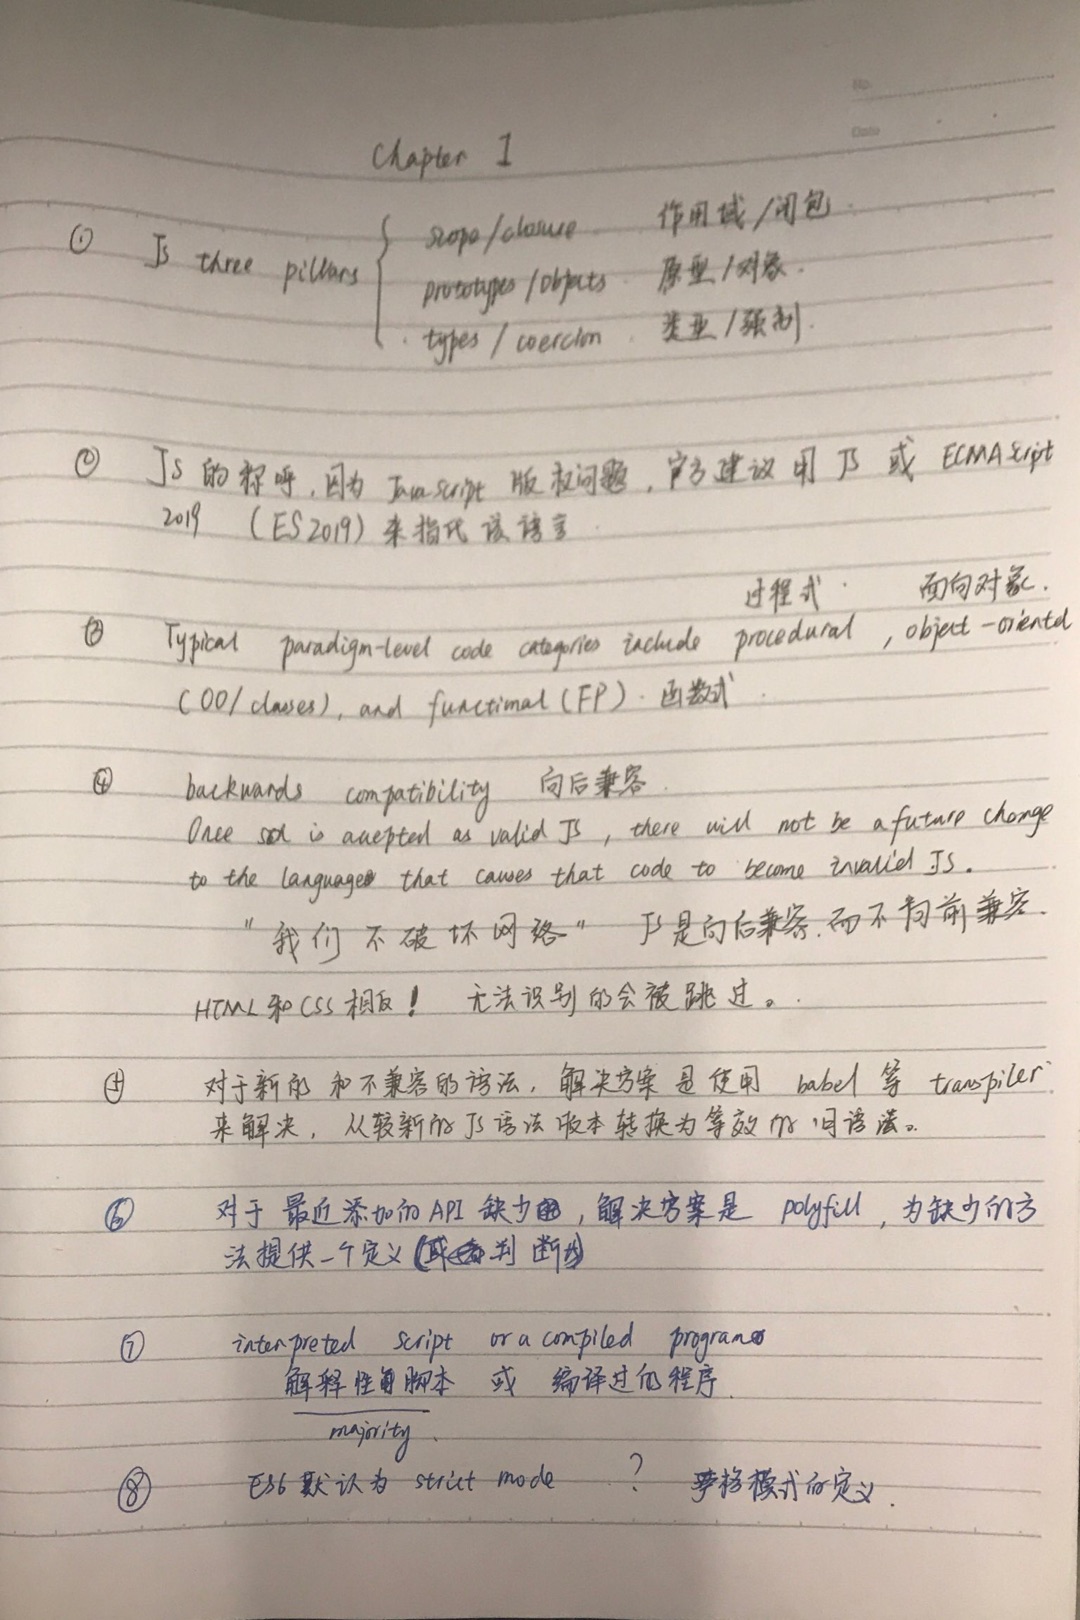 No.
Date
Chapter 1
① JS three pillars { scope/closure 作用域/闭包
prototypes/objects 原型/对象.
types/coercion 类型/强制.
② JS的称呼,因为JavaScript 版权问题,官方建议用JS 或 ECMAScript
2019 (ES2019)来指代该语言
过程式 面向对象.
③ Typical paradigm-level code categories include procedural, object-oriented
(OO/classes), and functional (FP). 函数式
④ backwards compatibility 向后兼容
Once is accepted as valid JS, there will not be a future change
to the language that causes that code to become invalid JS.
"我们不破坏网络" JS是向后兼容.而不向前兼容.
HTML和CSS相反! 无法识别的会被跳过。
对于新的和不兼容的语法,解决方案是使用 babel 等 transpiler
来解决,从较新的JS语法版本转换为等效的旧语法。
⑥ 对于最近添加的API缺少,解决方案是 polyfill,为缺少的方
法提供一个定义(判断)
⑦ interpreted script or a compiled program
解释性脚本 或 编译过的程序
majority.
⑧ ES6默认为 strict mode ? 严格模式的定义.